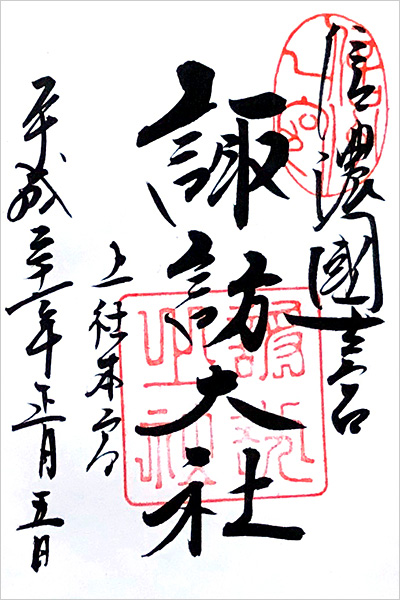 信濃國一之宮
諏訪大社
上社本宮
平成二十一年正月五日